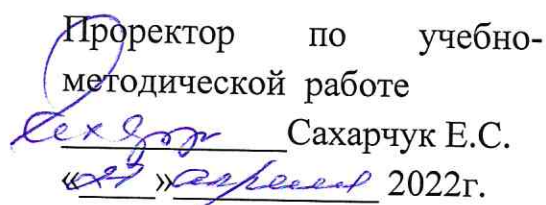 Проректор по учебно-
методической работе
Сахарчук Е.С.
«27» апреля 2022г.